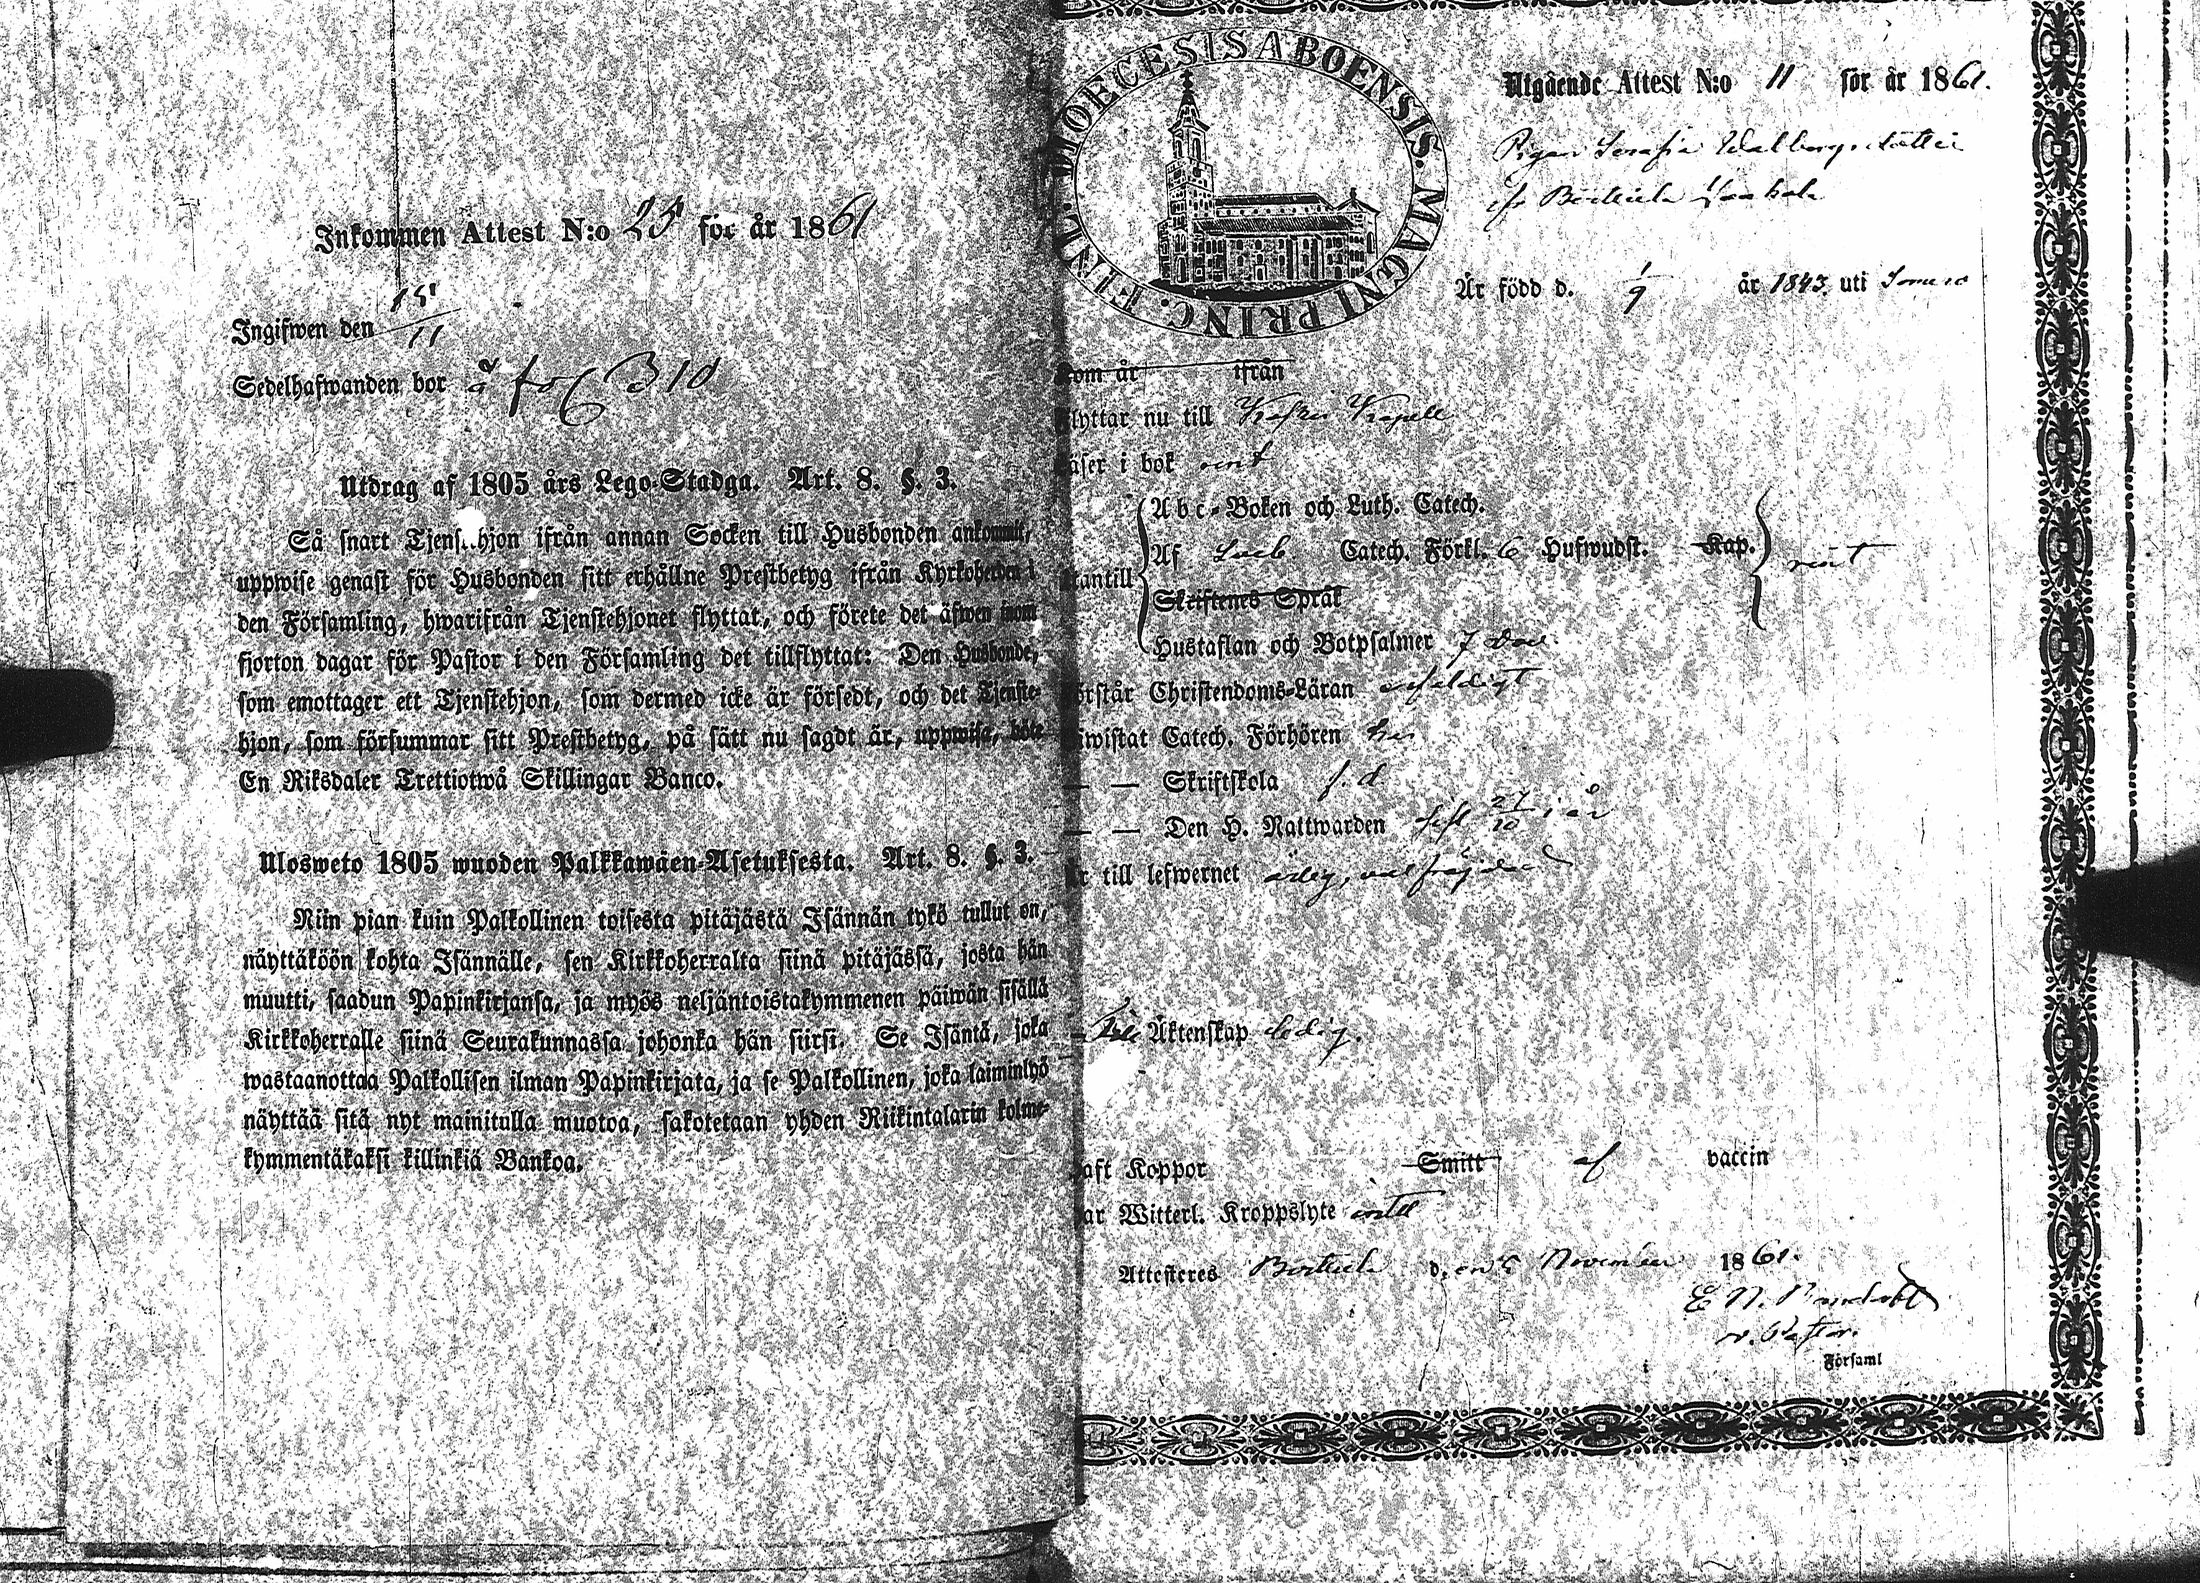 Inkommen Attest N:o 25 för år 1861
Ingifwen den 15/11
Sedelhafwanden bor å fol 310
Utdrag af 1805 års Lego-Stadga. Art. 8. §. 3.
Så snart Tjenstehjon ifrån annan Socken till Husbonden ankommit,
uppwise genast för Husbonden sitt erhållne Prestbetyg ifrån Kyrkoherden i
den Församling, hwarifrån Tjenstehjonet flyttat, och förete det äfwen inom
fjorton dagar för Pastor i den Församling det tillflyttat: Den Husbonde,
som emottager ett Tjenstehjon, som dermed icke är försedt, och det Tjenste-
hjon, som försummar sitt Prestbetyg, på sätt nu sagdt är, uppwisa, böte
En Riksdaler Trettiotwå Skillingar Banco.
Ulosweto 1805 wuoden Palkkawäen-Asetuksesta. Art. 8. §. 3.
Niin pian kuin Palkollinen toisesta pitäjästä Isännän tykö tullut on,
näyttäköön kohta Isännälle, sen Kirkkoherralta siinä pitäjässä, josta hän
muutti, saadun Papinkirjansa, ja myös neljäntoistakymmenen päiwän sisällä
Kirkkoherralle siinä Seurakunnassa johonka hän siirsi. Se Isäntä, joka
wastaanottaa Palkollisen ilman Papinkirjata, ja se Palkollinen, joka laiminlyö
näyttää sitä nyt mainitulla muotoa, sakotetaan yhden Riikintalarin kolme-
kymmentäkaksi killinkiä Bankoa.
DIOECESIS ABOENSIS. MAGNI PRINC. FINL.
Utgående Attest N:o 11 för år 1861.
Pigan Serafia Wallbergsdotter
ifr
Är född d. 1/9 år 1843 uti Somero
kom år ifrån
flyttar nu till Kapell
läser i bok rent
Abc-Boken och Luth. Catech.
Af Catech. Förkl. 6 Hufwudst. Kap.
utantill rent
Skriftenes Språk
Hustaflan och Botpsalmer 7
förstår Christendoms-Läran
biwistat Catech. Förhören
— — Skriftskola f. d
— — Den H. Nattwarden sist 27/10 i år
är till lefwernet ärlig, väl frejdad
Till Äktenskap ledig.
haft Koppor Smitt af vaccin
har Witterl. Kroppslyte intet
Attesteres d. en 5 November 1861.
E N.
v. Pastor.
Församl